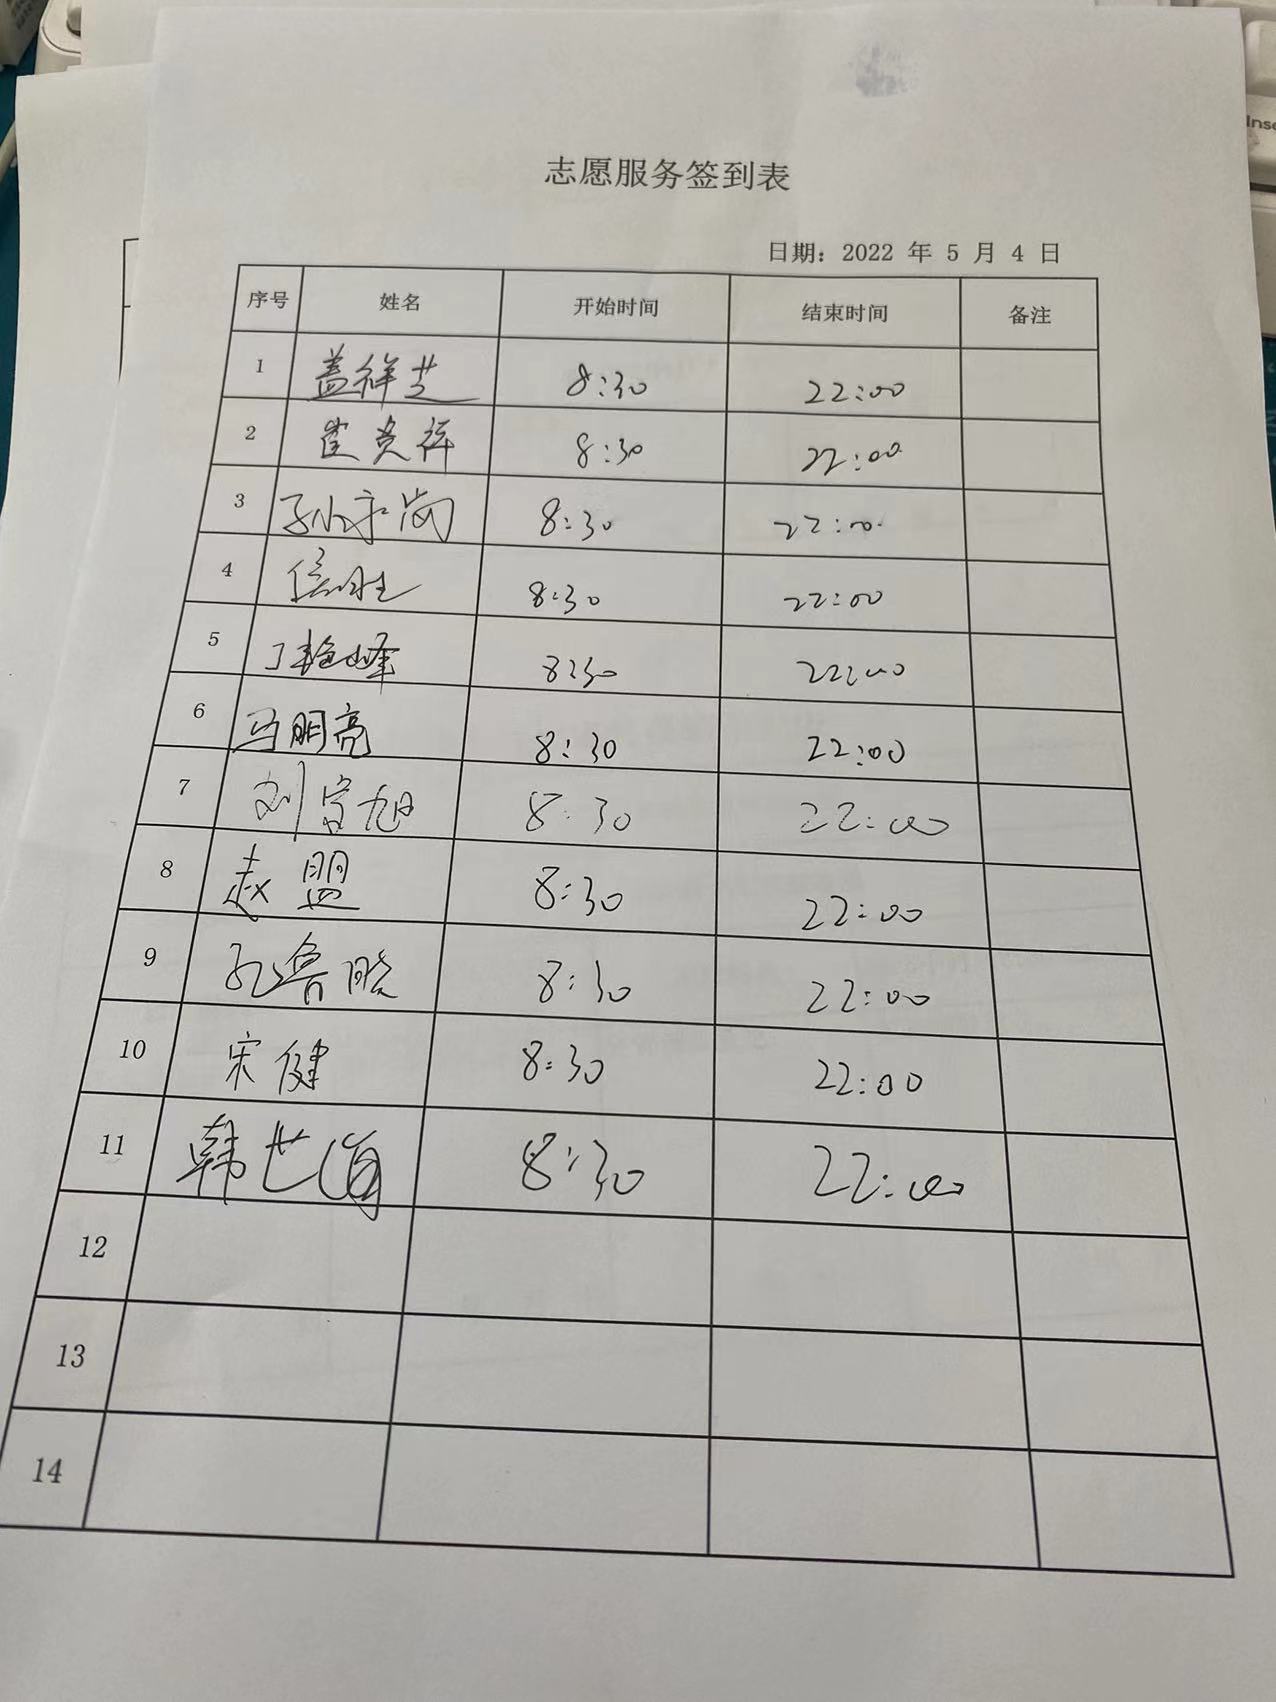 志愿服务签到表
日期：2022 年 5 月 4 日
序号 姓名 开始时间 结束时间 备注
1 盖祥芝 8:30 22:00
2 崔贵祥 8:30 22:00
3 8:30 22:00
4 8:30 22:00
5 丁艳峰 8:30 22:00
6 马明亮 8:30 22:00
7 刘官旭 8:30 22:00
8 赵盟 8:30 22:00
9 孔鲁晓 8:30 22:00
10 宋健 8:30 22:00
11 韩世 8:30 22:00
12
13
14
Inse